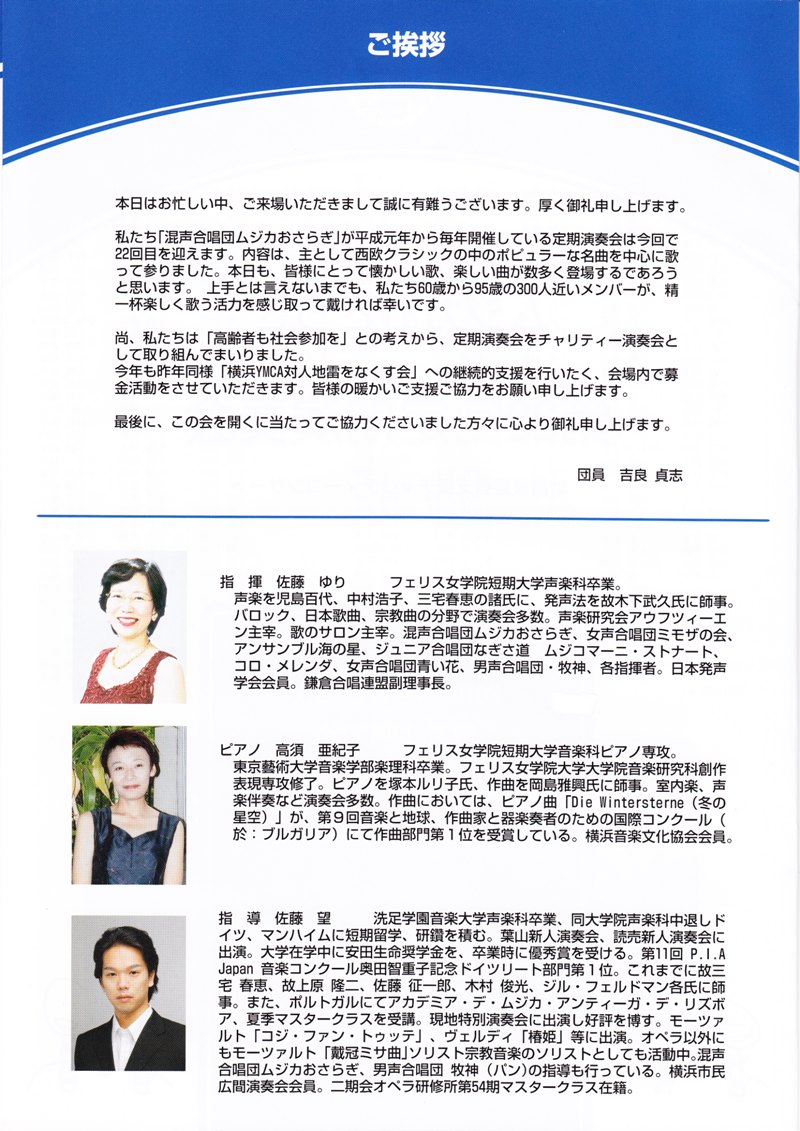 ご挨拶
本日はお忙しい中、ご来場いただきまして誠に有難うございます。厚く御礼申し上げます。
私たち「混声合唱団ムジカおさらぎ」が平成元年から毎年開催している定期演奏会は今回で
22回目を迎えます。内容は、主として西欧クラシックの中のポピュラーな名曲を中心に歌
って参りました。本日も、皆様にとって懐かしい歌、楽しい曲が数多く登場するであろう
と思います。 上手とは言えないまでも、私たち60歳から95歳の300人近いメンバーが、精
一杯楽しく歌う活力を感じ取って戴ければ幸いです。
尚、私たちは「高齢者も社会参加を」との考えから、定期演奏会をチャリティー演奏会と
して取り組んでまいりました。
今年も昨年同様「横浜YMCA対人地雷をなくす会」への継続的支援を行いたく、会場内で募
金活動をさせていただきます。皆様の暖かいご支援ご協力をお願い申し上げます。
最後に、この会を開くに当たってご協力くださいました方々に心より御礼申し上げます。
団員 吉良 貞志
指 揮 佐藤 ゆり フェリス女学院短期大学声楽科卒業。
声楽を児島百代、中村浩子、三宅春恵の諸氏に、発声法を故木下武久氏に師事。
バロック、日本歌曲、宗教曲の分野で演奏会多数。声楽研究会アウフツィーエ
ン主宰。歌のサロン主宰。混声合唱団ムジカおさらぎ、女声合唱団ミモザの会、
アンサンブル海の星、ジュニア合唱団なぎさ道 ムジコマーニ・ストナート、
コロ・メレンダ、女声合唱団青い花、男声合唱団・牧神、各指揮者。日本発声
学会会員。鎌倉合唱連盟副理事長。
ピアノ 高須 亜紀子 フェリス女学院短期大学音楽科ピアノ専攻。
東京藝術大学音楽学部楽理科卒業。フェリス女学院大学大学院音楽研究科創作
表現専攻修了。ピアノを塚本ルリ子氏、作曲を岡島雅興氏に師事。室内楽、声
楽伴奏など演奏会多数。作曲においては、ピアノ曲「Die Wintersterne（冬の
星空）」が、第９回音楽と地球、作曲家と器楽奏者のための国際コンクール（
於：ブルガリア）にて作曲部門第１位を受賞している。横浜音楽文化協会会員。
指 導 佐藤 望 洗足学園音楽大学声楽科卒業、同大学院声楽科中退しド
イツ、マンハイムに短期留学、研鑽を積む。葉山新人演奏会、読売新人演奏会に
出演。大学在学中に安田生命奨学金を、卒業時に優秀賞を受ける。第11回 P.I.A
Japan 音楽コンクール奥田智重子記念ドイツリート部門第１位。これまでに故三
宅 春恵、故上原 隆二、佐藤 征一郎、木村 俊光、ジル・フェルドマン各氏に師
事。また、ポルトガルにてアカデミア・デ・ムジカ・アンティーガ・デ・リズボ
ア、夏季マスタークラスを受講。現地特別演奏会に出演し好評を博す。モーツァ
ルト「コジ・ファン・トゥッテ」、ヴェルディ「椿姫」等に出演。オペラ以外に
もモーツァルト「戴冠ミサ曲」ソリスト宗教音楽のソリストとしても活動中。混声
合唱団ムジカおさらぎ、男声合唱団 牧神（パン）の指導も行っている。横浜市民
広間演奏会会員。二期会オペラ研修所第54期マスタークラス在籍。